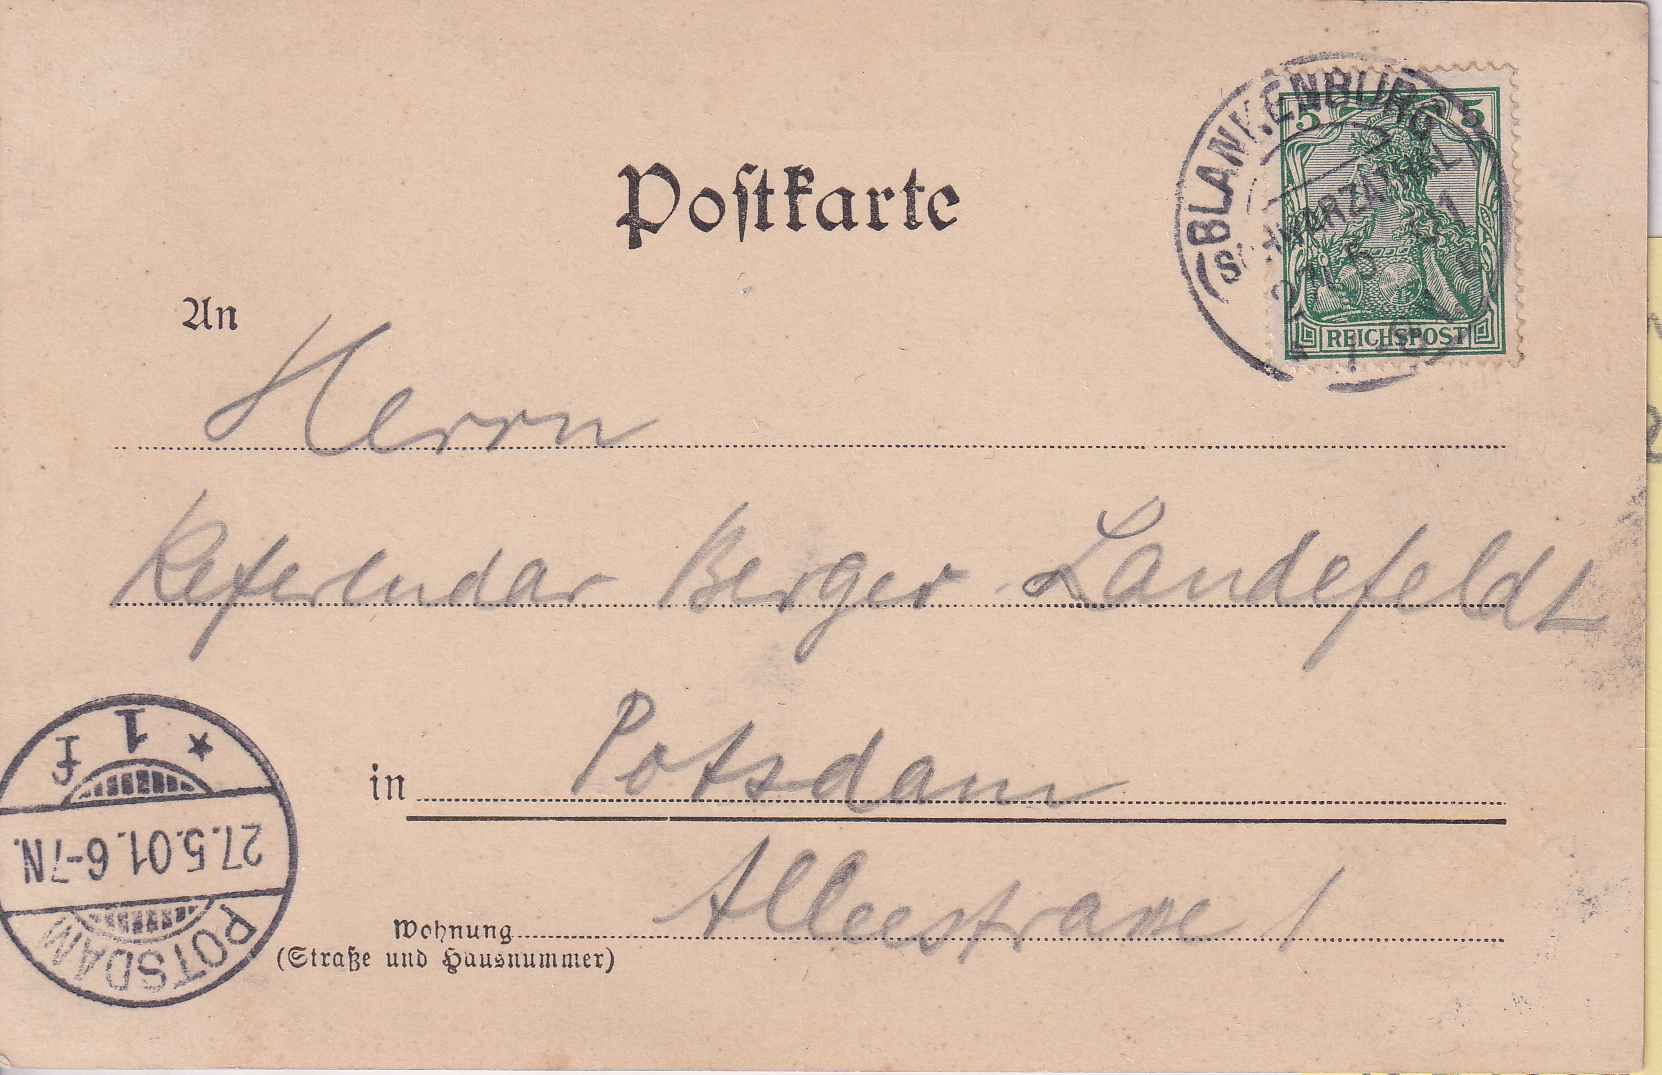 BLANKENBURG
SCHWARZATHAL
5 5
REICHSPOST
Postkarte
An
Herrn
Referendar Berger Landefeldt
in Potsdam
Wohnung Alleestrasse 1
(Straße und Hausnummer)
* 1 f
27.5.01.6-7N.
POTSDAM